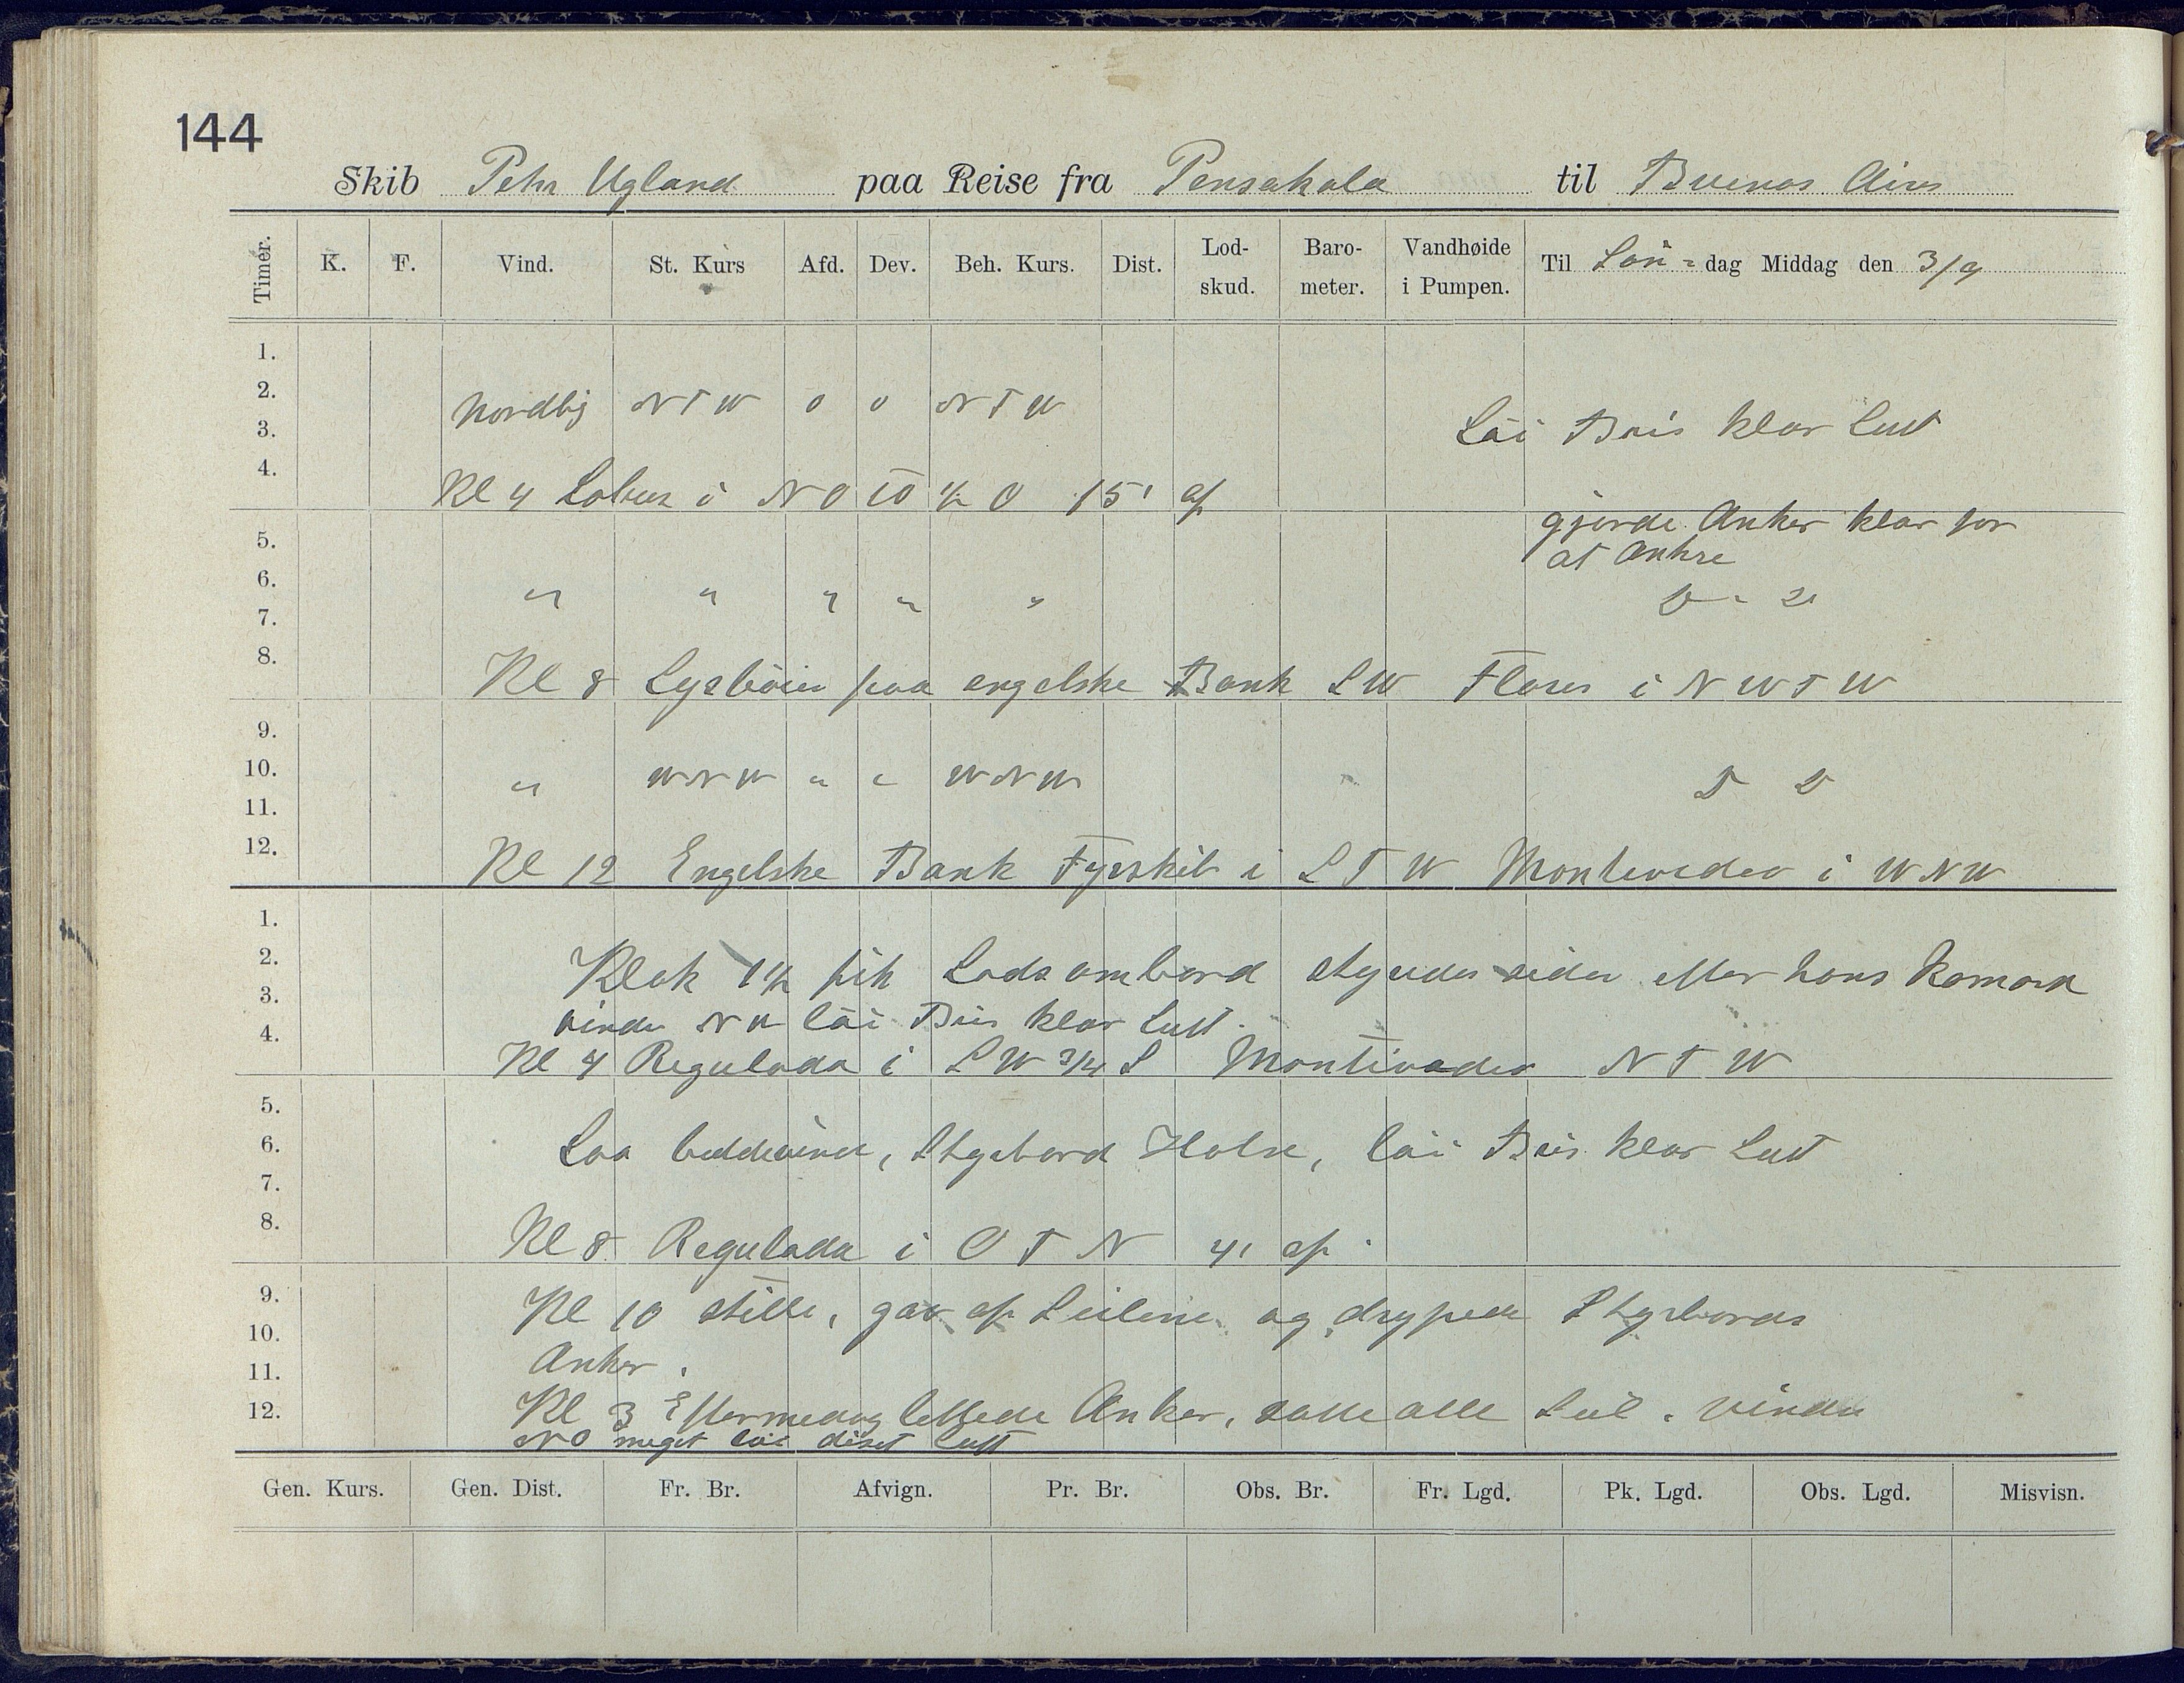 144
Skib Pehr Ugland paa Reise fra Pensakola til Buenos Aires
Timer. K. F. Vind. St. Kurs Afd. Dev. Beh. Kurs. Dist. Lod-skud. Baro-meter. Vandhøide i Pumpen. Til Løn = dag Middag den 3/9
1.
2. Nordlig NTW 0 0 NTW
3. Løi Bris klar Luft
4. Kl 4 Lobus i NO TO ½ O 15' af
gjorde Anker klar for
5. at Ankre
6. " " " " "
7.
8. Kl 8 Lysbøien paa engelske Bank SW Flores i NWTW
9.
10. " WNW " " WNW D D
11.
12. Kl 12 Engelske Bank Fyrskib i STW Montevideo i WNW
1.
2. Klok 1½ fik Lods ombord styredes siden efter hans Komand
3. vinden NW løi Bris klar Luft.
4. Kl 4 Regulada i SW ¾ S Montivideo NTW
5.
6. Laa bidevind, Styrbord Halse, løi Bris klar Luft
7.
8. Kl 8 Regulada i OTN 4' af.
9. Kl 10 stille, gav op Seilene og droppede Styrbords
10.
11. Anker.
12. Kl 3 Eftermedag lettede Anker, satte alle Seil. vinden
NO meget løi diset Luft
Gen. Kurs. Gen. Dist. Fr. Br. Afvign. Pr. Br. Obs. Br. Fr. Lgd. Pk. Lgd. Obs. Lgd. Misvisn.